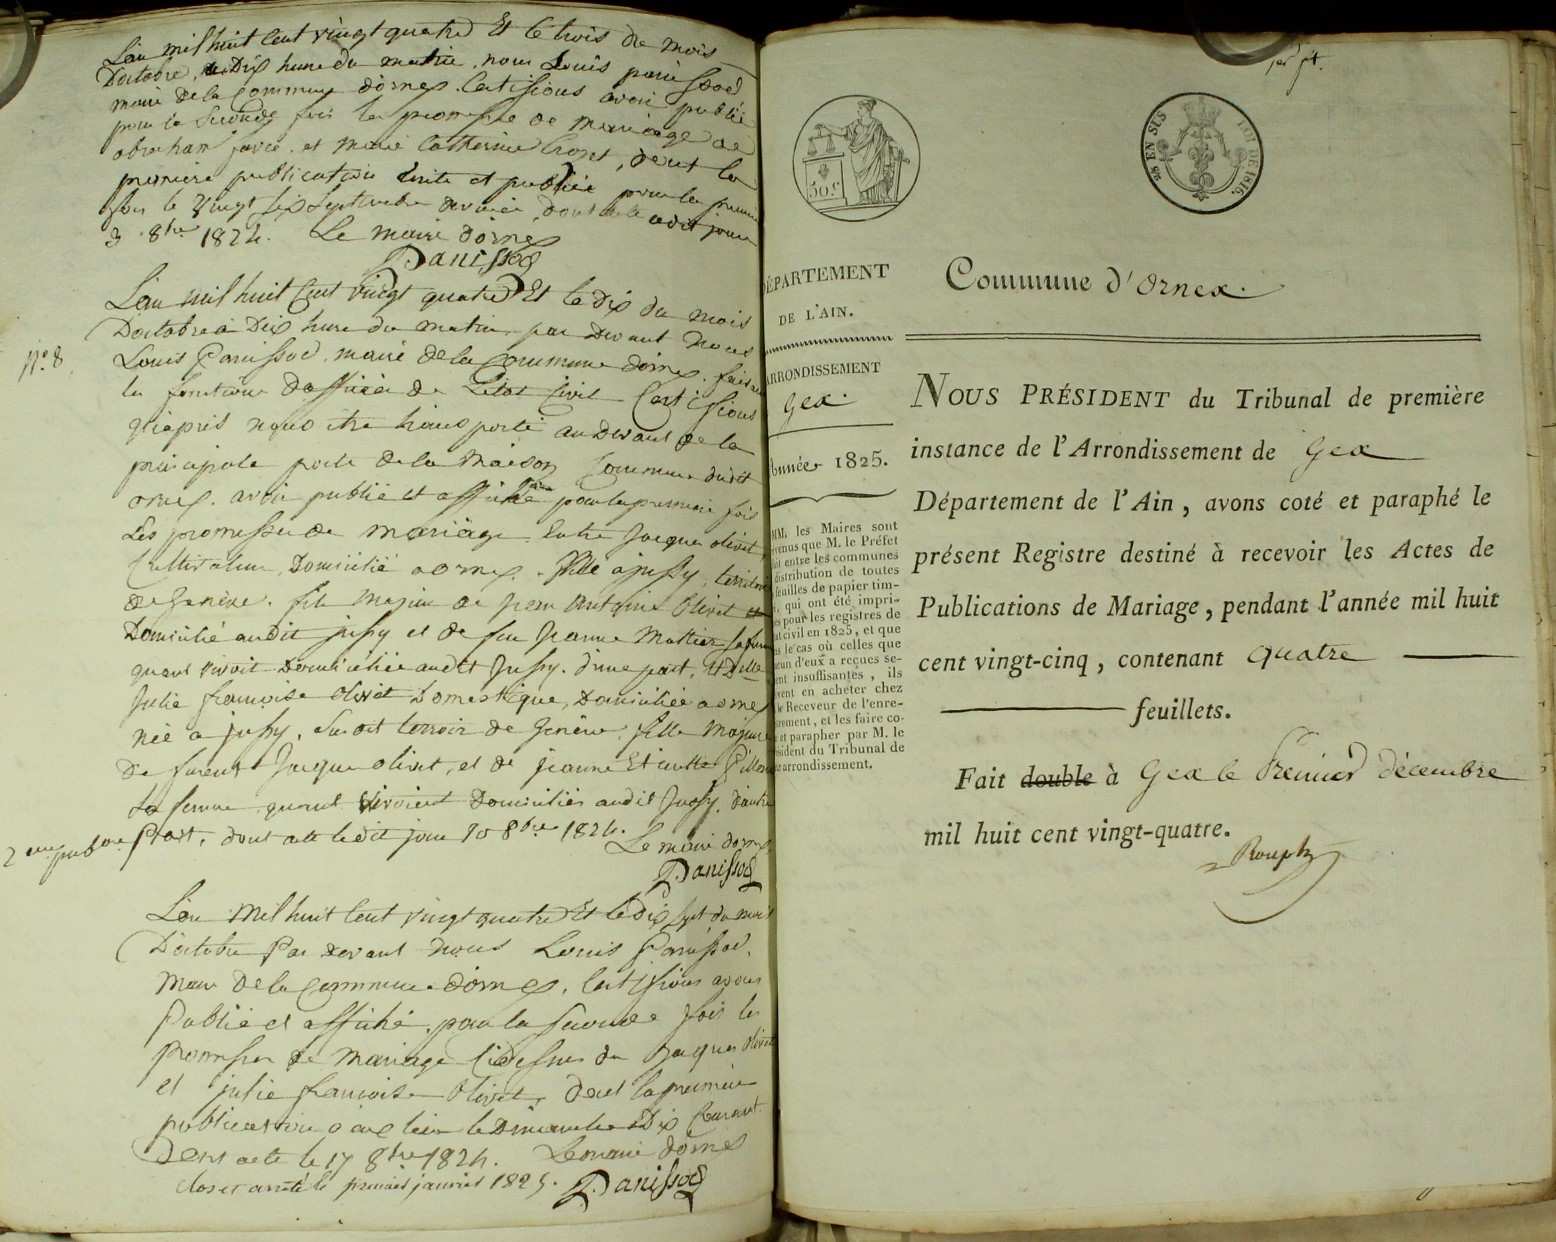 L'an mil huit Cent vingt quatre Et le trois de mois
D'octobre, à Dix hure du matin, nous Louis panissod
maire de la Commune d'ornex. Certifions avoir publié
pour la Seconde fois la promesse de mariage de
abraham et marie Catherine Croset, dont la
premiere publication faite et publiée pour la premiere
fois le vingt six Septembre dernier, dont acte ledit jour
3 8bre 1824. Le maire d'ornex
Panissod
L'an mil huit Cent vingt quatre Et le Dix du mois
D'octobre à Dix hure du matin, par devant Nous
Louis Panissod, maire de la Commune d'ornex. faisant
N.° 8
les fonctions D'officier de L'état Civil Certifions
qu'après nous être transporté au devant de la
principale porte de la Maison Commune dudit
ornex. avoir publié et affiché pour la premiere fois
Les promesses de mariage Entre Jacque olivet,
Cultivateur, Domicilié a ornex. à jussy, territoire
de Genève. fils majeur de jean Antoine Olivet
Domicilié audit jussy et de feu Jeanne sa femme
quand vivoit Domiciliée audit Jussy. d'une part, Et
Julie françoise Olivet Domestique, Domiciliée a ornex
née a jussy, Susdit terroir de Genève, fille majeure
De furent Jacque olivet, et de jeanne
Sa femme quand vivoient Domiciliés audit Jussy, d'autre
Part, dont acte ledit jour 10 8bre 1824. Le maire d'ornex
2eme pub.on
Panissod
L'an Mil huit Cent vingt quatre Et le Dix sept du mois
D'octobre Par devant nous Louis Panissod,
Maire de la Commune d'ornex, Certifions avoir
Publié et affiché, pour la seconde fois les
promesses de mariage Cidessus de Jaques Olivet
et julie françoise Olivet, dont la premiere
publication a eue lieu le Dimanche Dix Courant
Dont acte le 17 8bre 1824. Le maire d'ornex
Clos et arreté le premier janvier 1825. Panissod
1er ft.
50 c
28 EN SUS
LOI DE 1816.
DÉPARTEMENT
DE L'AIN.
ARRONDISSEMENT
Gex.
Année 1825.
MM. les Maires sont
venus que M. le Préfet
fait entre les communes
distribution de toutes
feuilles de papier tim-
qui ont été impri-
pour les registres de
civil en 1825, et que
le cas où celles que
d'eux a reçues se-
insuffisantes, ils
en acheter chez
le Receveur de l'enre-
et les faire co-
et parapher par M. le
Président du Tribunal de
arrondissement.
Commune d'Ornex.
NOUS PRÉSIDENT du Tribunal de première
instance de l'Arrondissement de Gex
Département de l'Ain, avons coté et paraphé le
présent Registre destiné à recevoir les Actes de
Publications de Mariage, pendant l'année mil huit
cent vingt-cinq, contenant quatre
feuillets.
Fait double à Gex le Premier décembre
mil huit cent vingt-quatre.